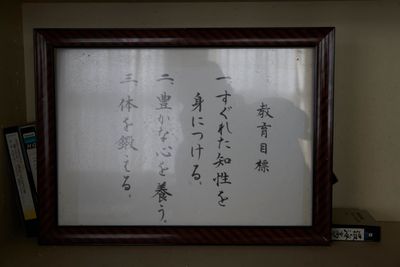 教育目標
一、すぐれた知性を
身につける。
二、豊かな心を養う。
三、体を鍛える。